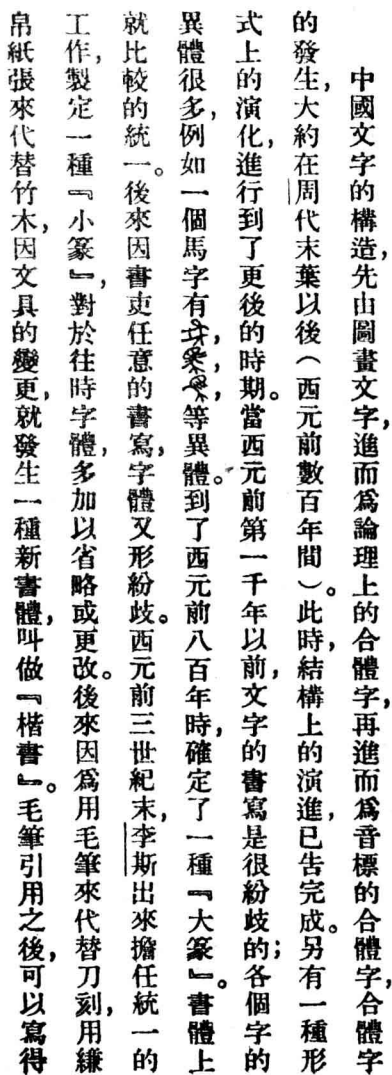 中國文字的構造，先由圖畫文字，進而爲論理上的合體字，再進而爲音標的合體字，合體字
的發生，大約在周代末葉以後（西元前數百年間）。此時，結構上的演進，已告完成。另有一種形
式上的演化，進行到了更後的時期。當西元前第一千年以前，文字的書寫是很紛歧的；各個字的
異體很多，例如一個馬字有，，等異體。到了西元前八百年時，確定了一種『大篆』。書體上
就比較的統一。後來因書吏任意的書寫，字體又形紛歧。西元前三世紀末，李斯出來擔任統一的
工作，製定一種『小篆』，對於往時字體，多加以省略或更改。後來因爲用毛筆來代替刀刻，用縑
帛紙張來代替竹木，因文具的變更，就發生一種新書體，叫做『楷書』。毛筆引用之後，可以寫得